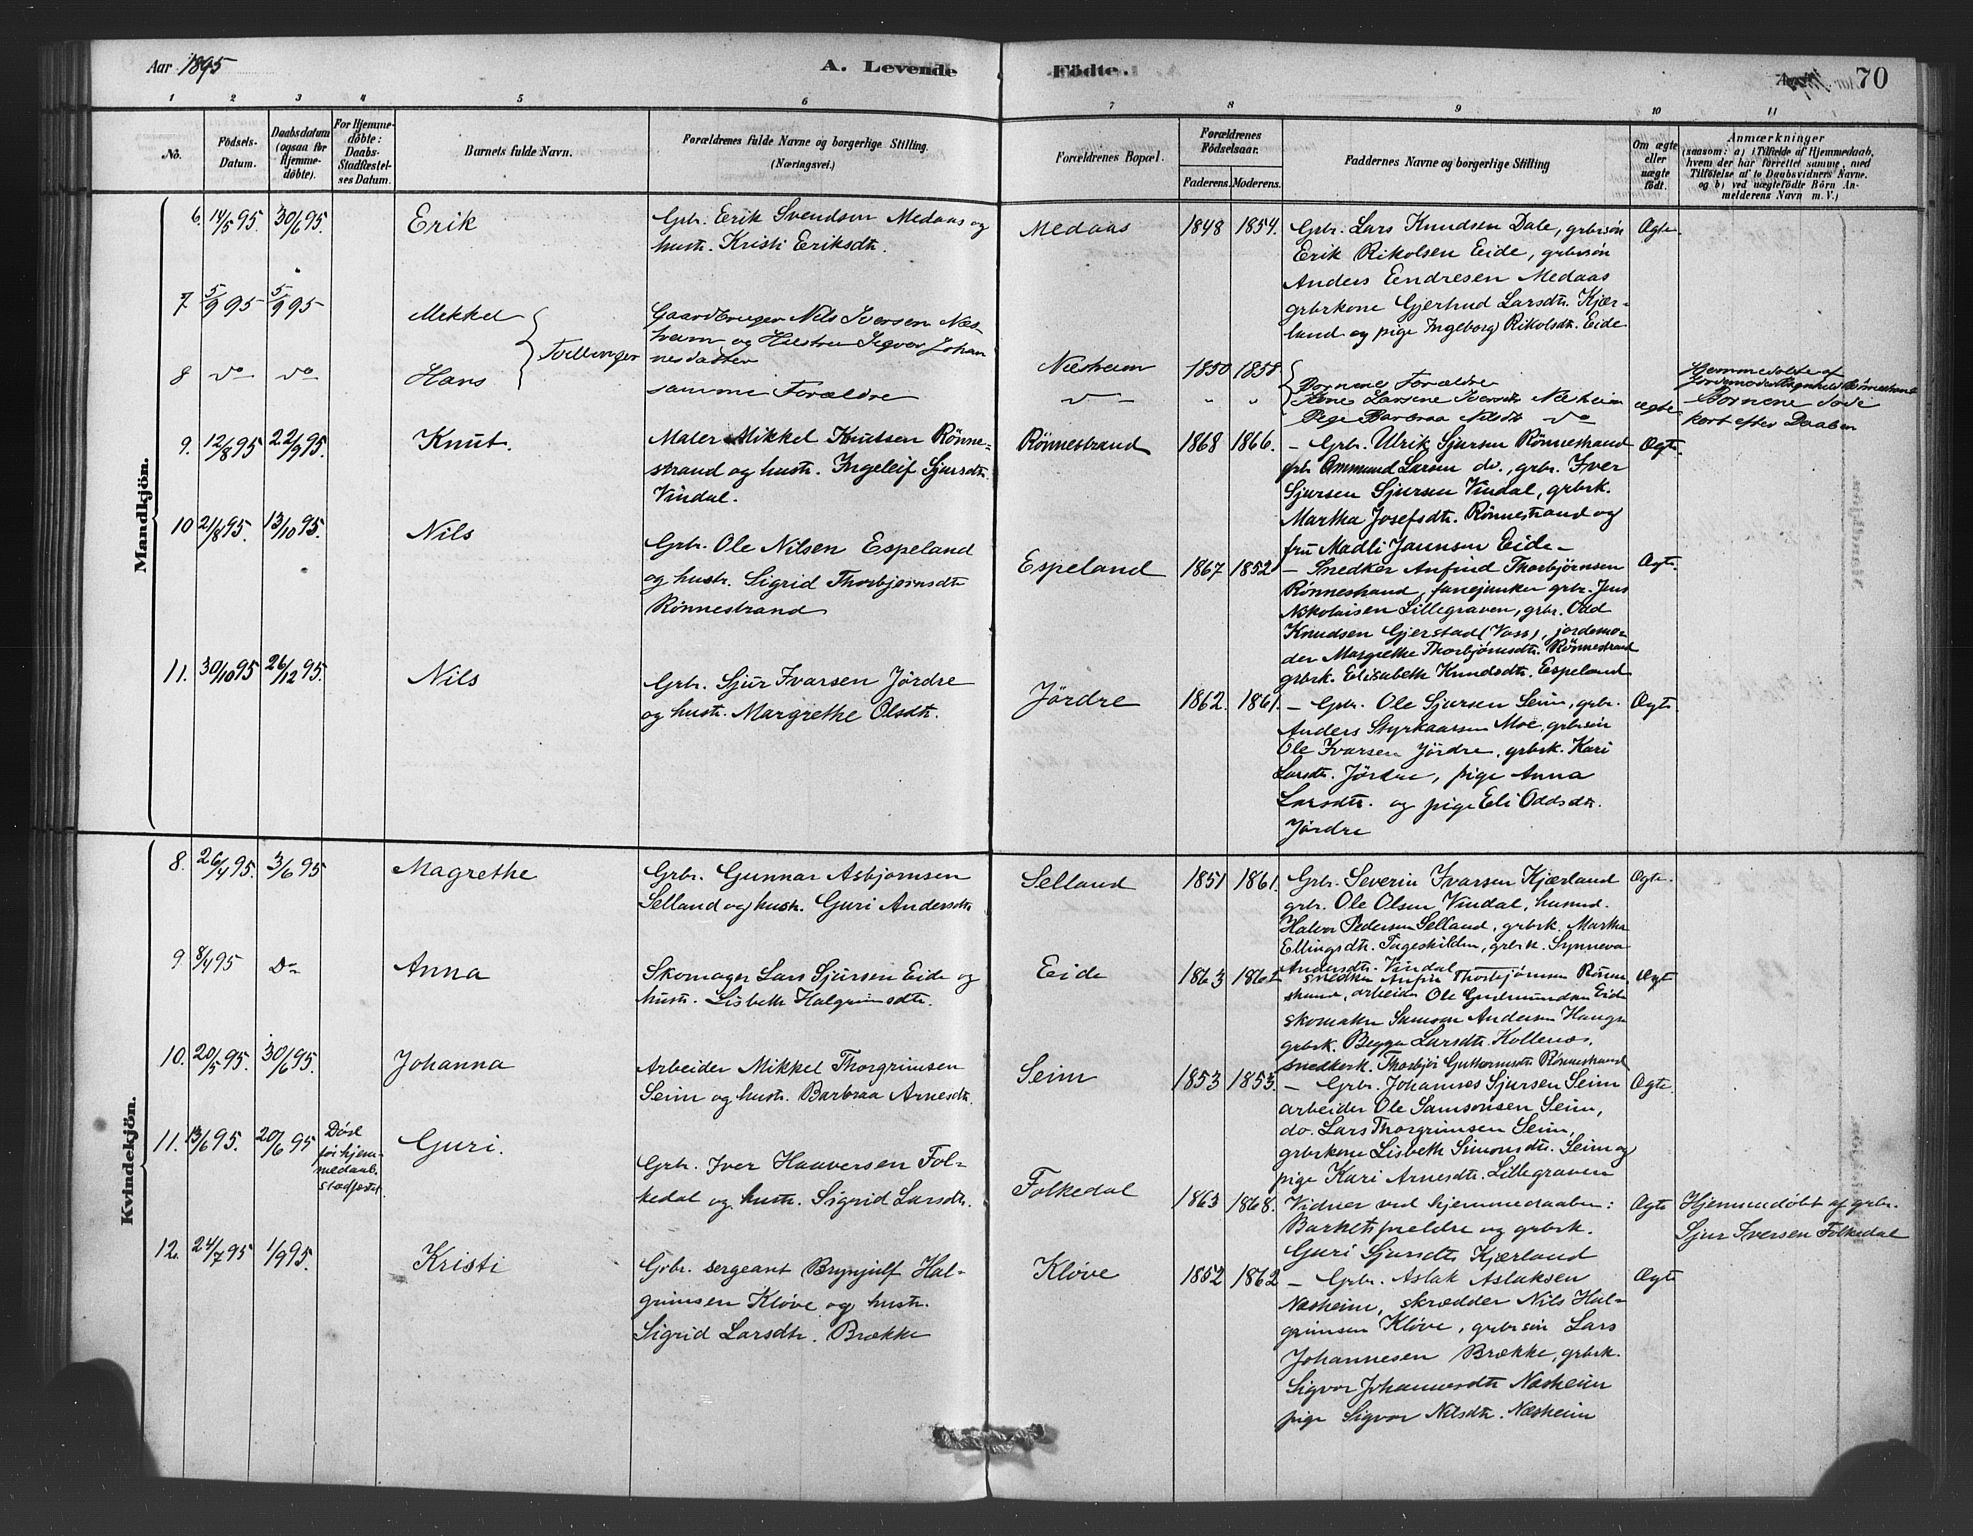 Aar 1895
A. Levende Födte.
70
1 2 3 4 5 6 7 8 9 10 11
No.
Födsels-
Datum.
Daabsdatum
(ogsaa for
Hjemme-
döbte).
For Hjemme-
döbte:
Daabs-
Stadfæstel-
ses Datum.
Barnets fulde Navn.
Forældrenes fulde Navne og borgerlige Stilling.
(Næringsvei.)
Forældrenes Bopæl.
Forældrenes
Födselsaar.
Faderens. Moderens.
Faddernes Navne og borgerlige Stilling
Om ægte
eller
uægte
födt.
Anmærkninger
(saasom: a) i Tilfælde af Hjemmedaab,
hvem der har forrettet samme, med
Tilföielse af to Daabsvidners Navne.
og b) ved uægtefödte Börn An-
melderens Navn m. V.)
Mandkjön.
6. 14/5 95. 30/6 95.
Erik
Grb. Erik Svendsen Medaas og
hustr. Kristi Eriksdtr.
Medaas
1848 1854.
Grbr. Lars Knudsen Dale, grbrsön
Erik Rikolsen Eide, grbrsön
Anders Eendresen Medaas
grbrkone Gjertrud Larsdtr. Kjær-
land og pige Ingeborg Rikolsdtr. Eide
Ægte
7. 5/9 95 5/9 95
Mikkel
Tvillinger
Gaardbruger Nils Iversen Næs-
heim og Hustru Sigvor Johan
nesdatter
Næsheim
1850 1858
8 do do
Hans
samme Forældre
Börnenes Forældre
Kone Larsine Iversdtr Næsheim
Pige Barbraa Nilsdtr do
ægte
Hjemmedöbte af
Jordemoder Ragnhild Rönnestrand
Börnene döde
kort efter Daaben
9. 12/8 95 22/9 95.
Knut.
Maler Mikkel Knutsen Rönne-
strand og hustr. Ingeleif Sjursdtr.
Vindal.
Rönnestrand
1868 1866.
– Grbr. Ulrik Sjursen Rönnestrand
grb. Ommund Larsen do., grbr. Iver
Sjursen Sjursen Vindal, grbrk.
Martha Josefsdtr. Rönnestrand og
fru Madli Jannsen Eide –
Ægte
10 21/8 95. 13/10 95.
Nils
Grb. Ole Nilsen Espeland
og hustr. Sigrid Thorbjörnsdtr
Rönnestrand
Espeland
1867 1852
– Snedker Anfind Thorbjörnsen
Rönnestrand, fanejunker grbr. Jens
Nikolaisen Lillegraven, grbr. Odd
Knudsen Gjerstad (Voss), jordemo-
der Margrethe Thorbjörnsdtr. Rönnestrand
grbrk. Elisabeth Knudsdtr. Espeland
Ægte
11. 30/10 95 26/12 95.
Nils
Grb. Sjur Ivarsen Jördre
og hustr. Margrethe Olsdtr.
Jördre
1862. 1861.
– Grbr. Ole Sjursen Seim, grbr.
Anders Styrkaarsen Moe, grbrsön
Ole Ivarsen Jördre, grbrk. Kari
Larsdtr. Jördre, pige Anna
Larsdtr. og pige Eli Oddsdtr.
Jördre
Ægte
Kvindekjön.
8. 26/4 95. 3/6 95
Magrethe
Grb. Gunnar Asbjörnsen
Selland og hustr. Guri Andersdtr
Selland
1851 1861.
Grbr. Severin Ivarsen Kjærland
grbr. Ole Olsen Vindal, husmd.
Halvor Pedersen Selland, grbrk. Martha
Ellingsdtr. Tageskilden, grbrk. Synneva
Andersdtr. Vindal
Ægte.
9 8/4 95 Do
Anna
Skomager Lars Sjursen Eide og
hustr. Lisbeth Halgrimsdtr.
Eide
1863 1862
snedker Anfin Thorbjörnsen Rönne
strand, arbeider Ole Gudmundsen Eide
skomaker Samson Andersen Haugs
grbrk. Begga Larsdtr. Kollenos,
snedkerk. Thorbjör Guttormsdtr Rönnestrand
Ægte
10. 20/5 95. 30/6 95.
Johanna
Arbeider Mikkel Thorgrimsen
Seim og hustr. Barbraa Arnesdtr.
Seim
1853 1853.
– Grbr. Johannes Sjursen Seim
arbeider Ole Samsonsen Seim,
do. Lars Thorgrimsen Seim,
grbrkone Lisbeth Simonsdtr. Seim og
pige Kari Arnesdtr. Lillegraven
Ægte
11. 13/6 95. 20/6 95
Död
för hjem-
medaab.
stadfæstet.
Guri.
Grb. Iver Haaversen Fol-
kedal og hustr. Sigrid Larsdtr.
Folkedal
1863 1868.
Vidner ved hjemmedaaben:
Barnets forældre og grbrk.
Guri Sjursdtr Kjærland
Ægte
Hjemmedöbt af grbr.
Sjur Iversen Folkedal
12. 24/7 95 1/9 95.
Kristi
Grbr. sergeant Brynjulf Hal-
grimsen Klöve og hustr.
Sigrid Larsdtr. Brække
Klöve
1852 1862
– Grbr. Aslak Aslaksen
Næsheim, skrædder Nils Hal-
grimsen Klöve, grbrsön Lars
Johannesen Brække, grbrk.
Sigvor Johannesdtr Næsheim
pige Sigvor Nilsdtr. Næsheim
Ægte